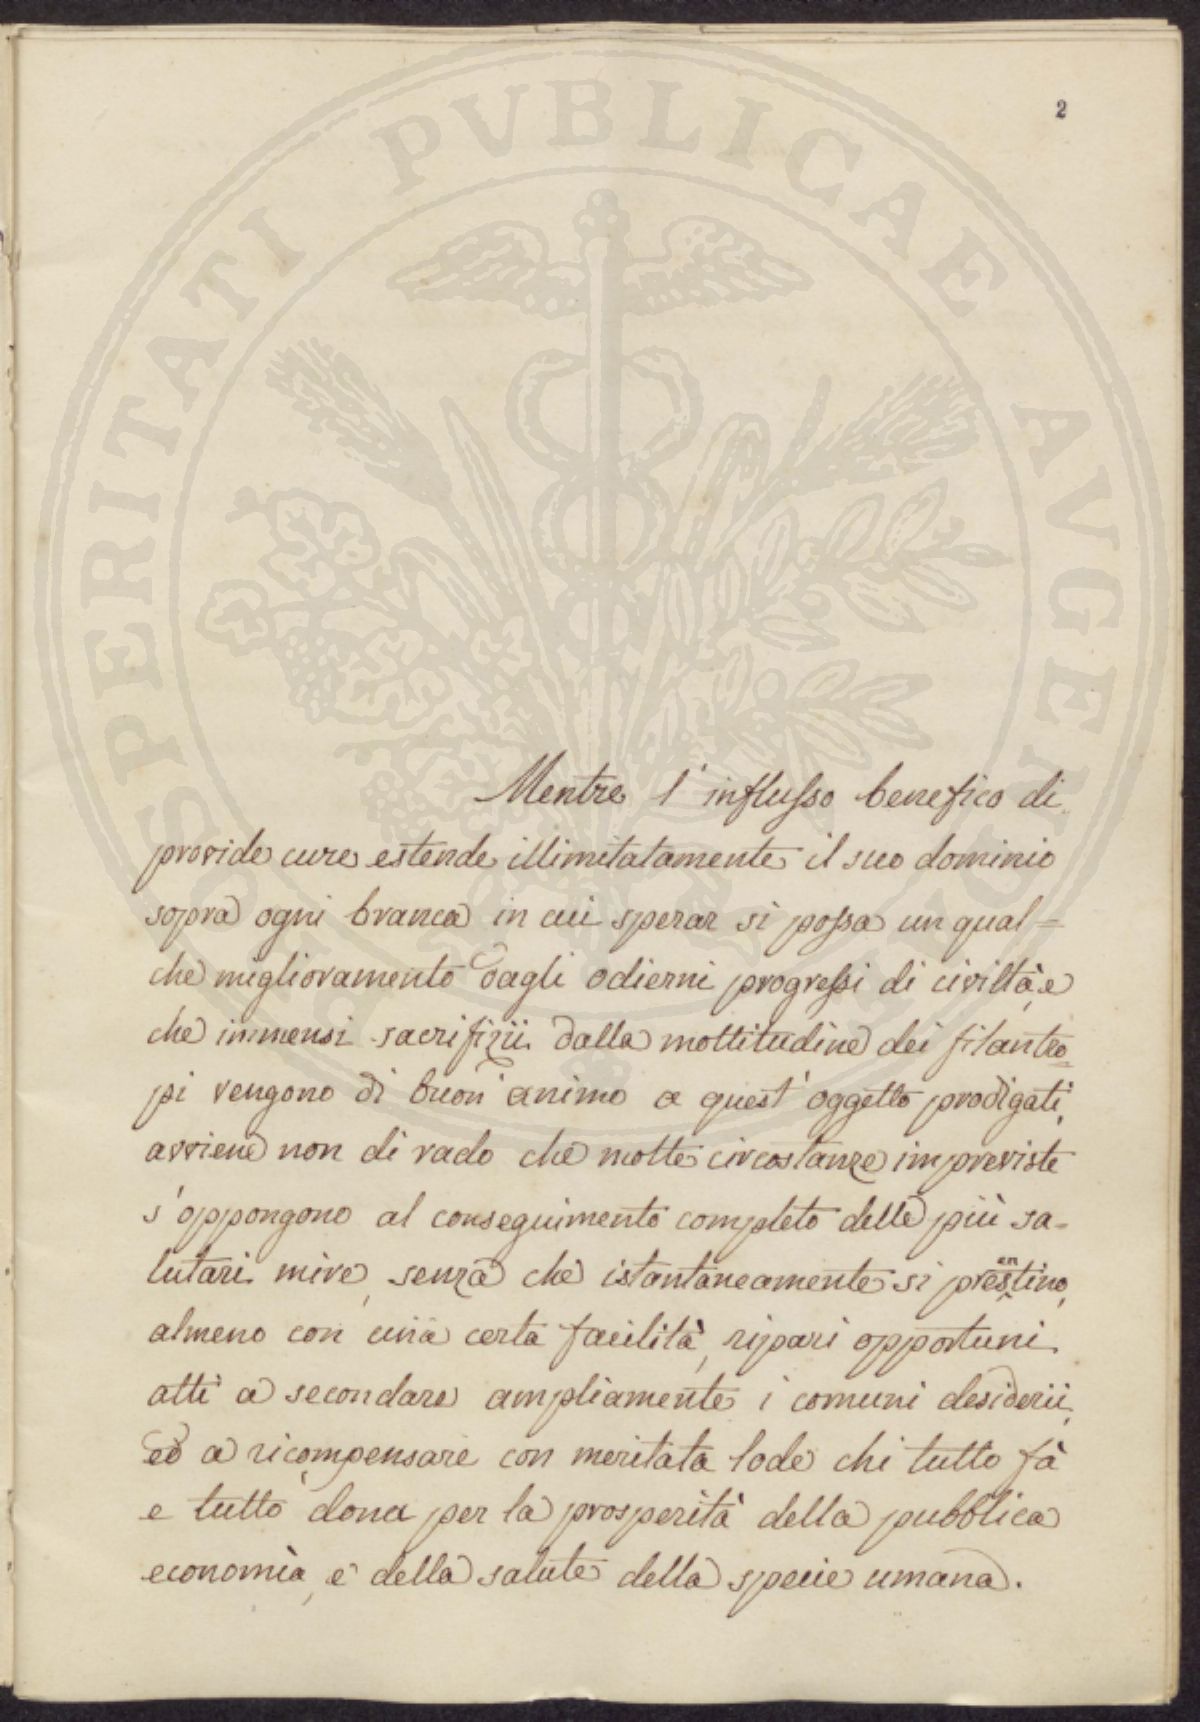 2
PROSPERITATI PVBLICAE AVGENDAE
Mentre l'influsso benefico di
provide cure estende illimitatamente il suo dominio
sopra ogni branca in cui sperar si possa un qual=
che miglioramento dagli odierni progressi di civiltà, e
che immensi sacrifizii dalla moltitudine dei filantro=
pi vengono di buon animo a quest'oggetto prodigati,
avviene non di rado che molte circostanze impreviste
s'oppongono al conseguimento completo delle più sa-
lutari mire, senza che istantaneamente si presentino,
almeno con una certa facilità, ripari opportuni
atti a secondare ampliamente i comuni desiderii,
ed a ricompensare con meritata lode chi tutto fà
e tutto dona per la prosperità della pubblica
economìa, e della salute della specie umana.